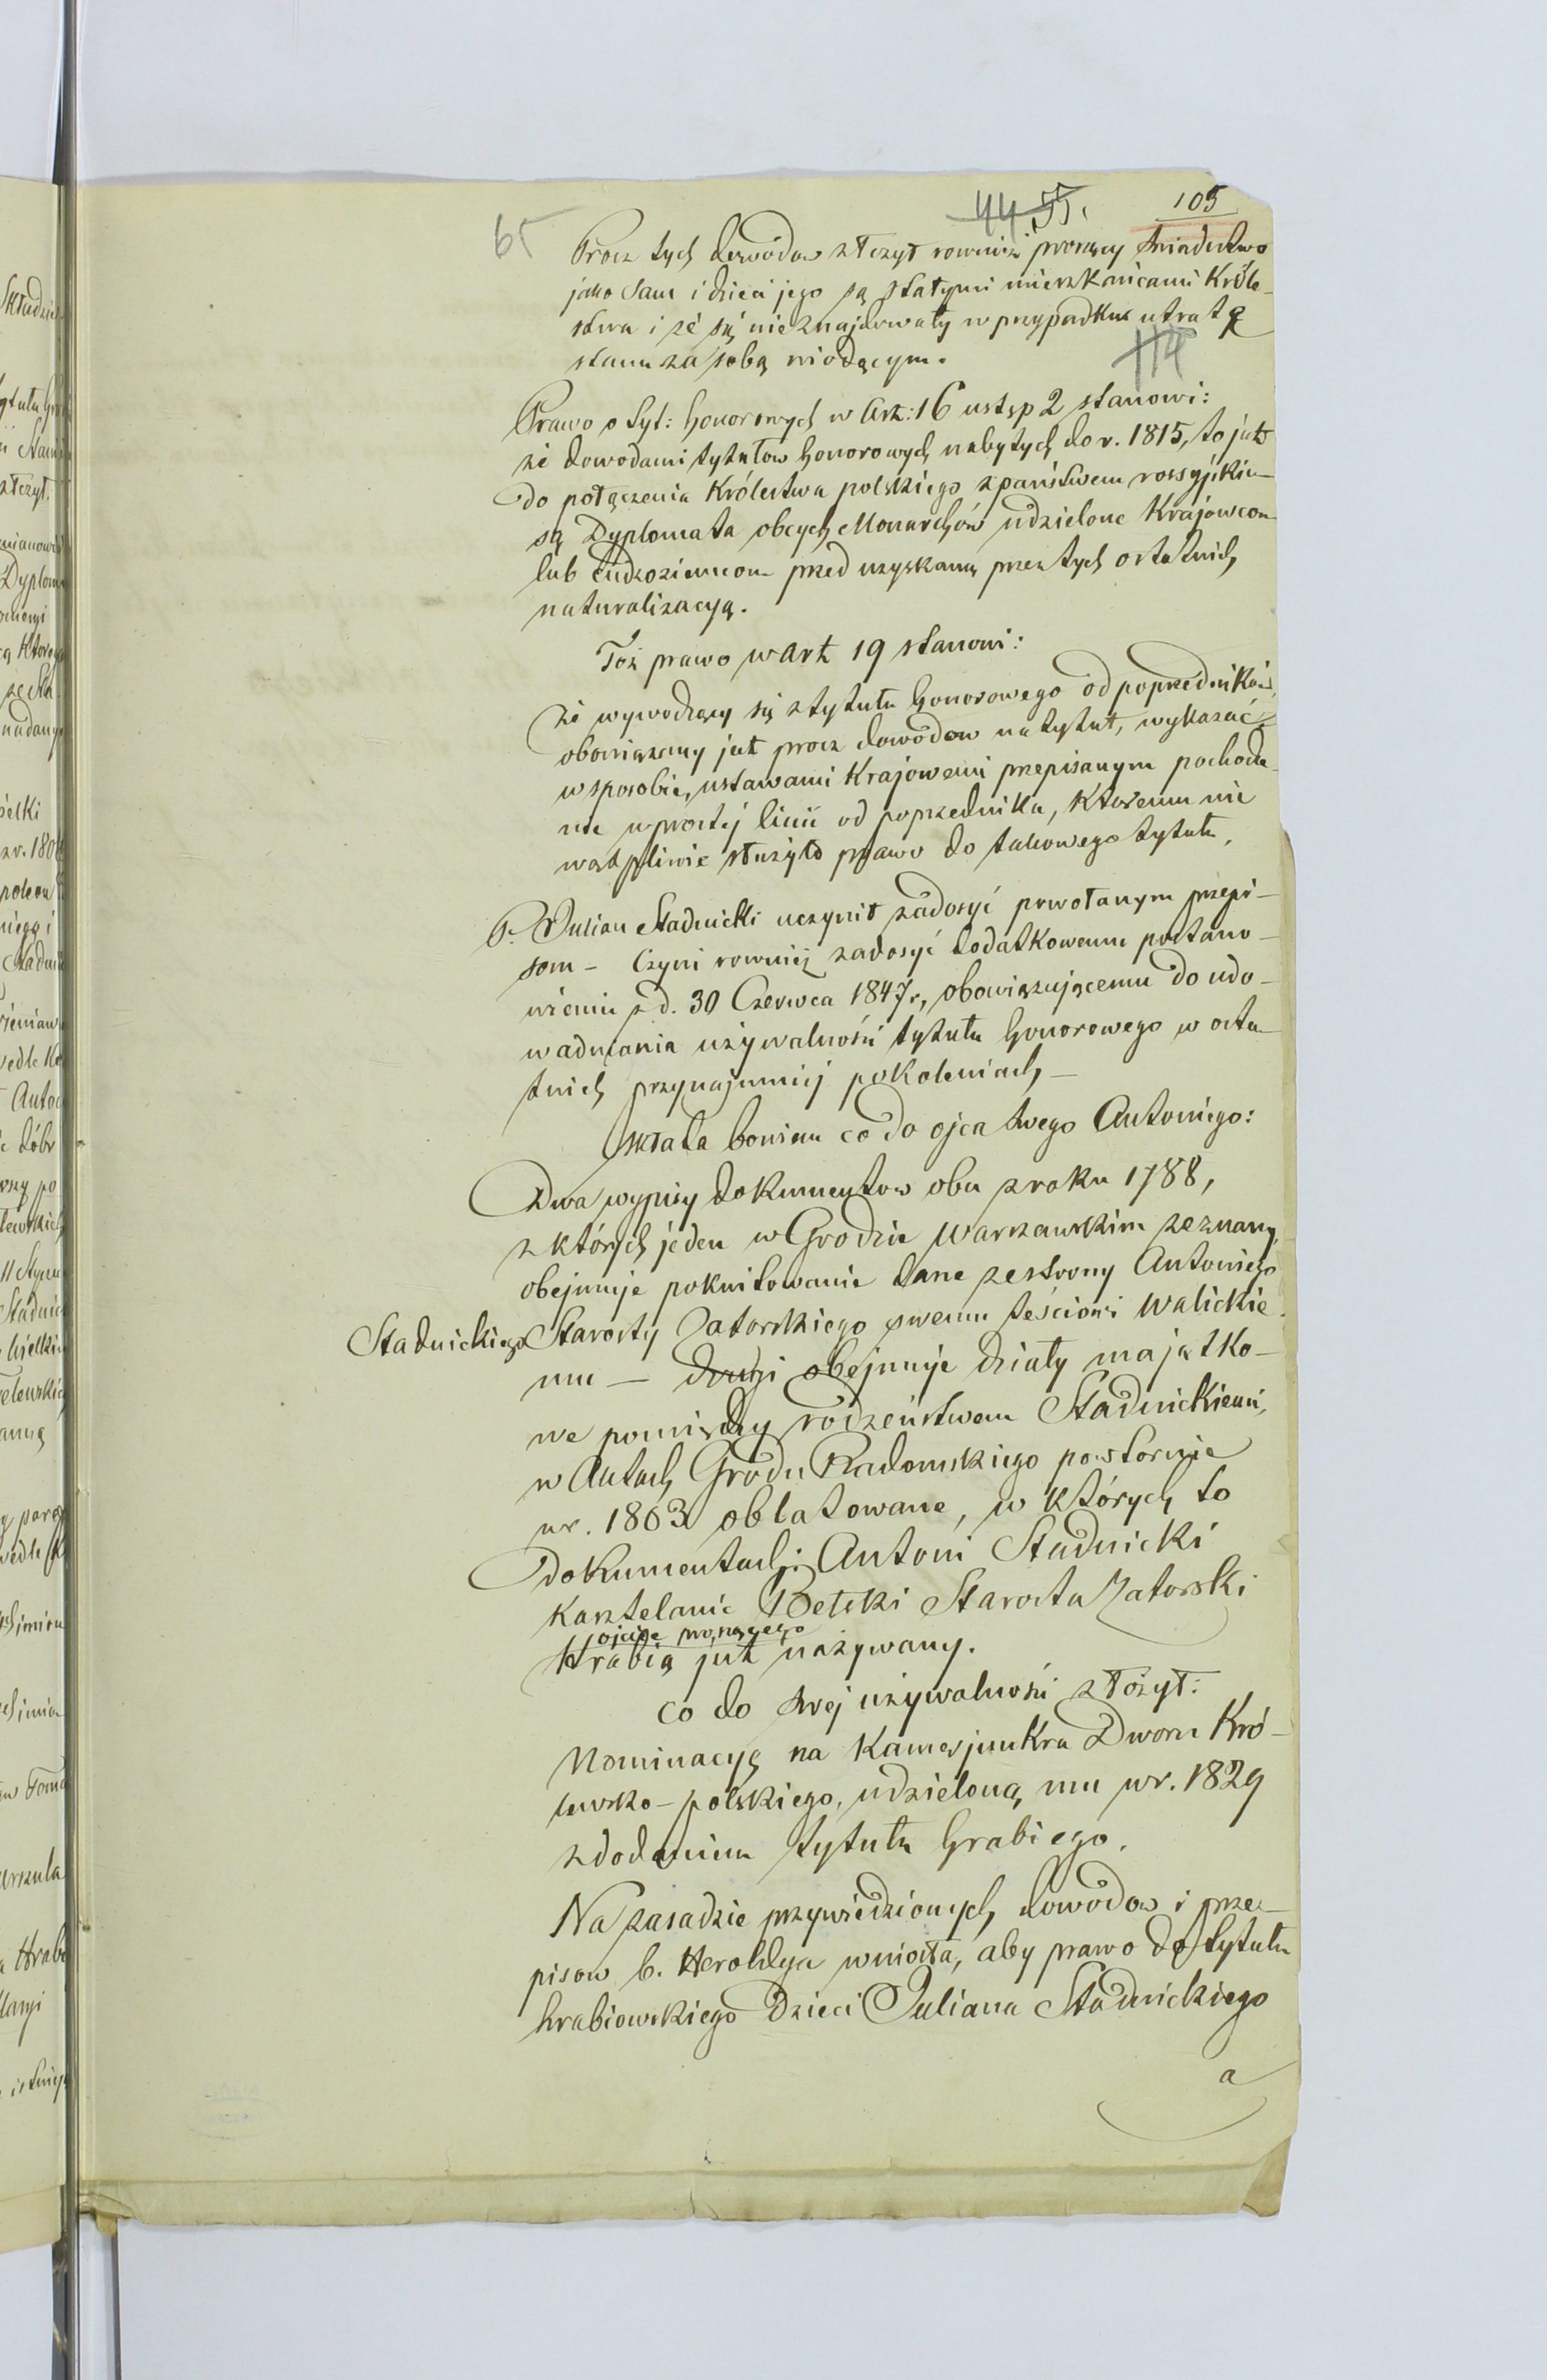 65 44 55. 105
Procz tych dowodow złożył rownież proszący świadectwo
jako Sam i dzieci jego są stałymi mieszkańcami Króle-
stwa i że się nieznajdowały w przypadku utratę
stanu za sobą wiodącym.
114
Prawo o tyt: honorowych w Art: 16 ustęp 2 stanowi:
że dowodami tytułow honorowych nabytych do r. 1815, to jest
do połączenia Królestwa polskiego z państwem rossyjskiem
są Dyplomata obcych Monarchów udzielone Krajowcom
lub Cudzoziemcom przed uzyskaną przez tych ostatnich
naturalizacyą.
Toż prawo w art 19 stanowi:
że wywodzący się z tytułu honorowego od poprzedników,
obowiązany jest procz dowodow na tytuł, wykazać
w sposobie, ustawami Krajowemi przepisanym pochodze-
nie w prostej linii od poprzednika, któremu nie
wątpliwie służyło prawo do takowego tytułu.
P. Julian Stadnicki uczynił zadosyć powołanym przepi-
som - Czyni rownież zadosyć dodatkowemu postano-
wieniu z d. 30 Czerwca 1847 r., obowiązującemu do udo-
wadniania używalności tytułu honorowego w osta-
tnich przynajmniej pokoleniach -
Składa bowiem co do ojca swego Antoniego:
Dwa wypisy dokumentow obu z roku 1788,
z których jeden w Grodzie Warszawskim zeznany,
obejmuje pokwitowanie dane ze strony Antoniego
Stadnickiego Starosty Zatorskiego swemu teściowi Walickie-
mu - drugi obejmuje działy majątko-
we pomiędzy rodzeństwem Stadnickiemi,
w Aktach Grodu Radomskiego powtornie
w r. 1803 oblatowane, w których to
dokumentach Antoni Stadnicki
Kasztelanic Bełski Starosta Zatorski
ojciec proszącego
Hrabią jest nazywany.
Co do swej używalności złożył:
Nominacyę na Kamerjunkra Dworu Kró-
lewsko-polskiego, udzieloną mu w r. 1829
z dodaniem tytułu hrabiego.
Na zasadzie przywiedzionych dowodow i prze-
pisow b. Heroldya wniosła, aby prawo do tytułu
hrabiowskiego Dzieci Juliana Stadnickiego
a